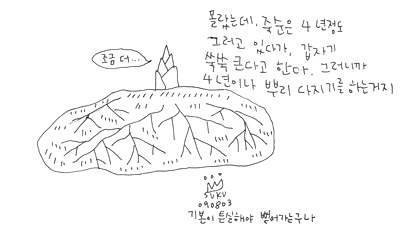 몰랐는데, 죽순은 4년정도
그러고 있다가, 갑자기
쑥쑥 큰다고 한다. 그러니까
4년이나 뿌리 다지기를 하는거지
조금 더...
SUKU
090803
기본이 튼실해야 뻗어가는구나